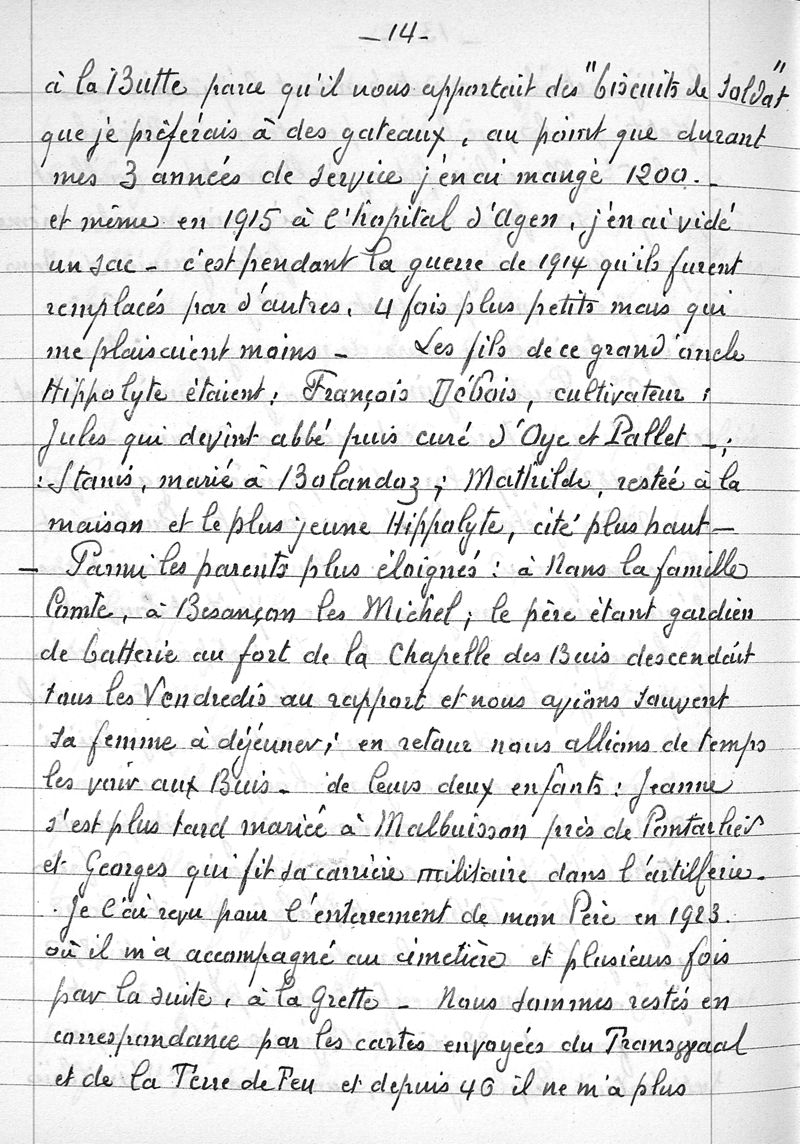 - 14 -
à la Butte parce qu'il nous apportait des "biscuits de soldat"
que je préferais à des gateaux, au point que durant
mes 3 années de service j'en ai mangé 1200. -
et même en 1915 à l'hôpital d'Agen, j'en ai vidé
un sac - c'est pendant la guerre de 1914 qu'ils furent
remplacés par d'autres, 4 fois plus petits mais qui
me plaisaient moins - Les fils de ce grand'oncle
Hippolyte étaient : François Débois, cultivateur ;
Jules qui devint abbé puis curé d'Oye et Pallet - ;
: Stanis, marié à Bolandoz ; Mathilde, restée à la
maison et le plus jeune Hippolyte, cité plus haut -
- Parmi les parents plus éloignés : à Nans la famille
Comte, à Besançon les Michel ; le père étant gardien
de batterie au fort de la Chapelle des Buis descendait
tous les Vendredis au rapport et nous avions souvent
sa femme à déjéuner ; en retour nous allions de temps
les voir aux Buis - de leurs deux enfants : Jeanne
s'est plus tard mariée à Malbuisson près de Pontarlier
et Georges qui fit sa carrière militaire dans l'artillerie -
. Je l'ai revu pour l'enterrement de mon Père en 1923.
où il m'a accompagné au cimetière et plusieurs fois
par la suite, à la Grette - Nous sommes restés en
correspondance par les cartes envoyées du Transvaal
et de la Terre de Feu et depuis 40 il ne m'a plus